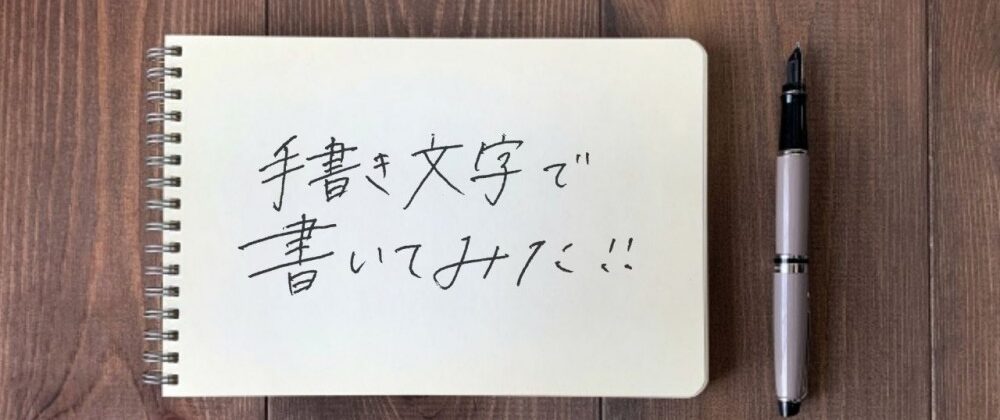 手書き文字で
書いてみた!!